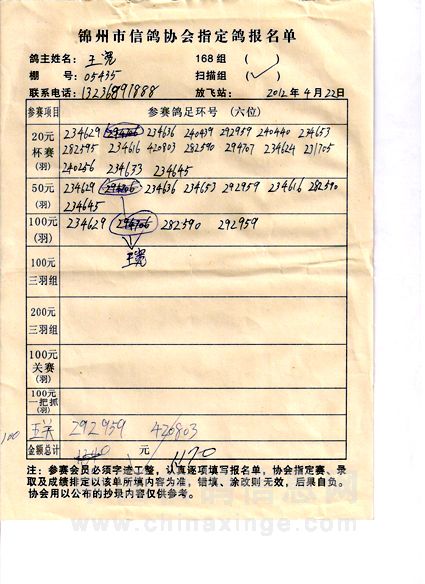 锦州市信鸽协会指定鸽报名单
鸽主姓名: 王宽 168组 ( )
棚 号: 05435 扫描组 (✓)
联系电话: 13236891888 放飞站: 2012年4月22日
参赛项目 参赛鸽足环号 (六位)
20元 234629 294706 234636 240439 292959 240440 234653
杯赛 282595 234616 420803 282590 294707 234624 231705
(羽) 240256 234633 234645
50元 234629 294706 234636 234653 292959 234616 282590
(羽) 234645
100元 234629 294706 282590 292959
(羽)
王宽
100元
三羽组
200元
三羽组
100元
关赛
(羽)
100元
一把抓
(羽)
100 五关 292959 420803
金额总计 元 1470
注: 参赛会员必须字迹工整, 认真逐项填写报名单, 协会指定赛、录
取及成绩排定以该单所填内容为准, 错填、涂改则无效, 后果自负。
协会用以公布的抄录内容仅供参考。
www.chinaxinge.com